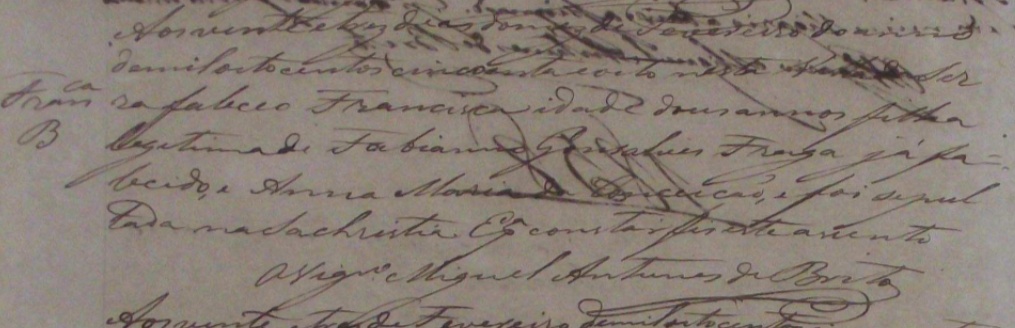 Aos vinte e tres dias do mes de Fevereiro do anno
de mil oito centos cincoenta e oito nesta Ser
Fran ca
ra faleceo Francisca idade dous annos filha
B
legitima de Fabianno Gonsalves Fraga já fa-
lecido, e Anna Maria da Conceicão, e foi sepul
tada na Sachristia. E pa constar fis este acento
O Vigro Miguel Antunes de Brito
Aos vinte e tres de Fevereiro de mil oito centos